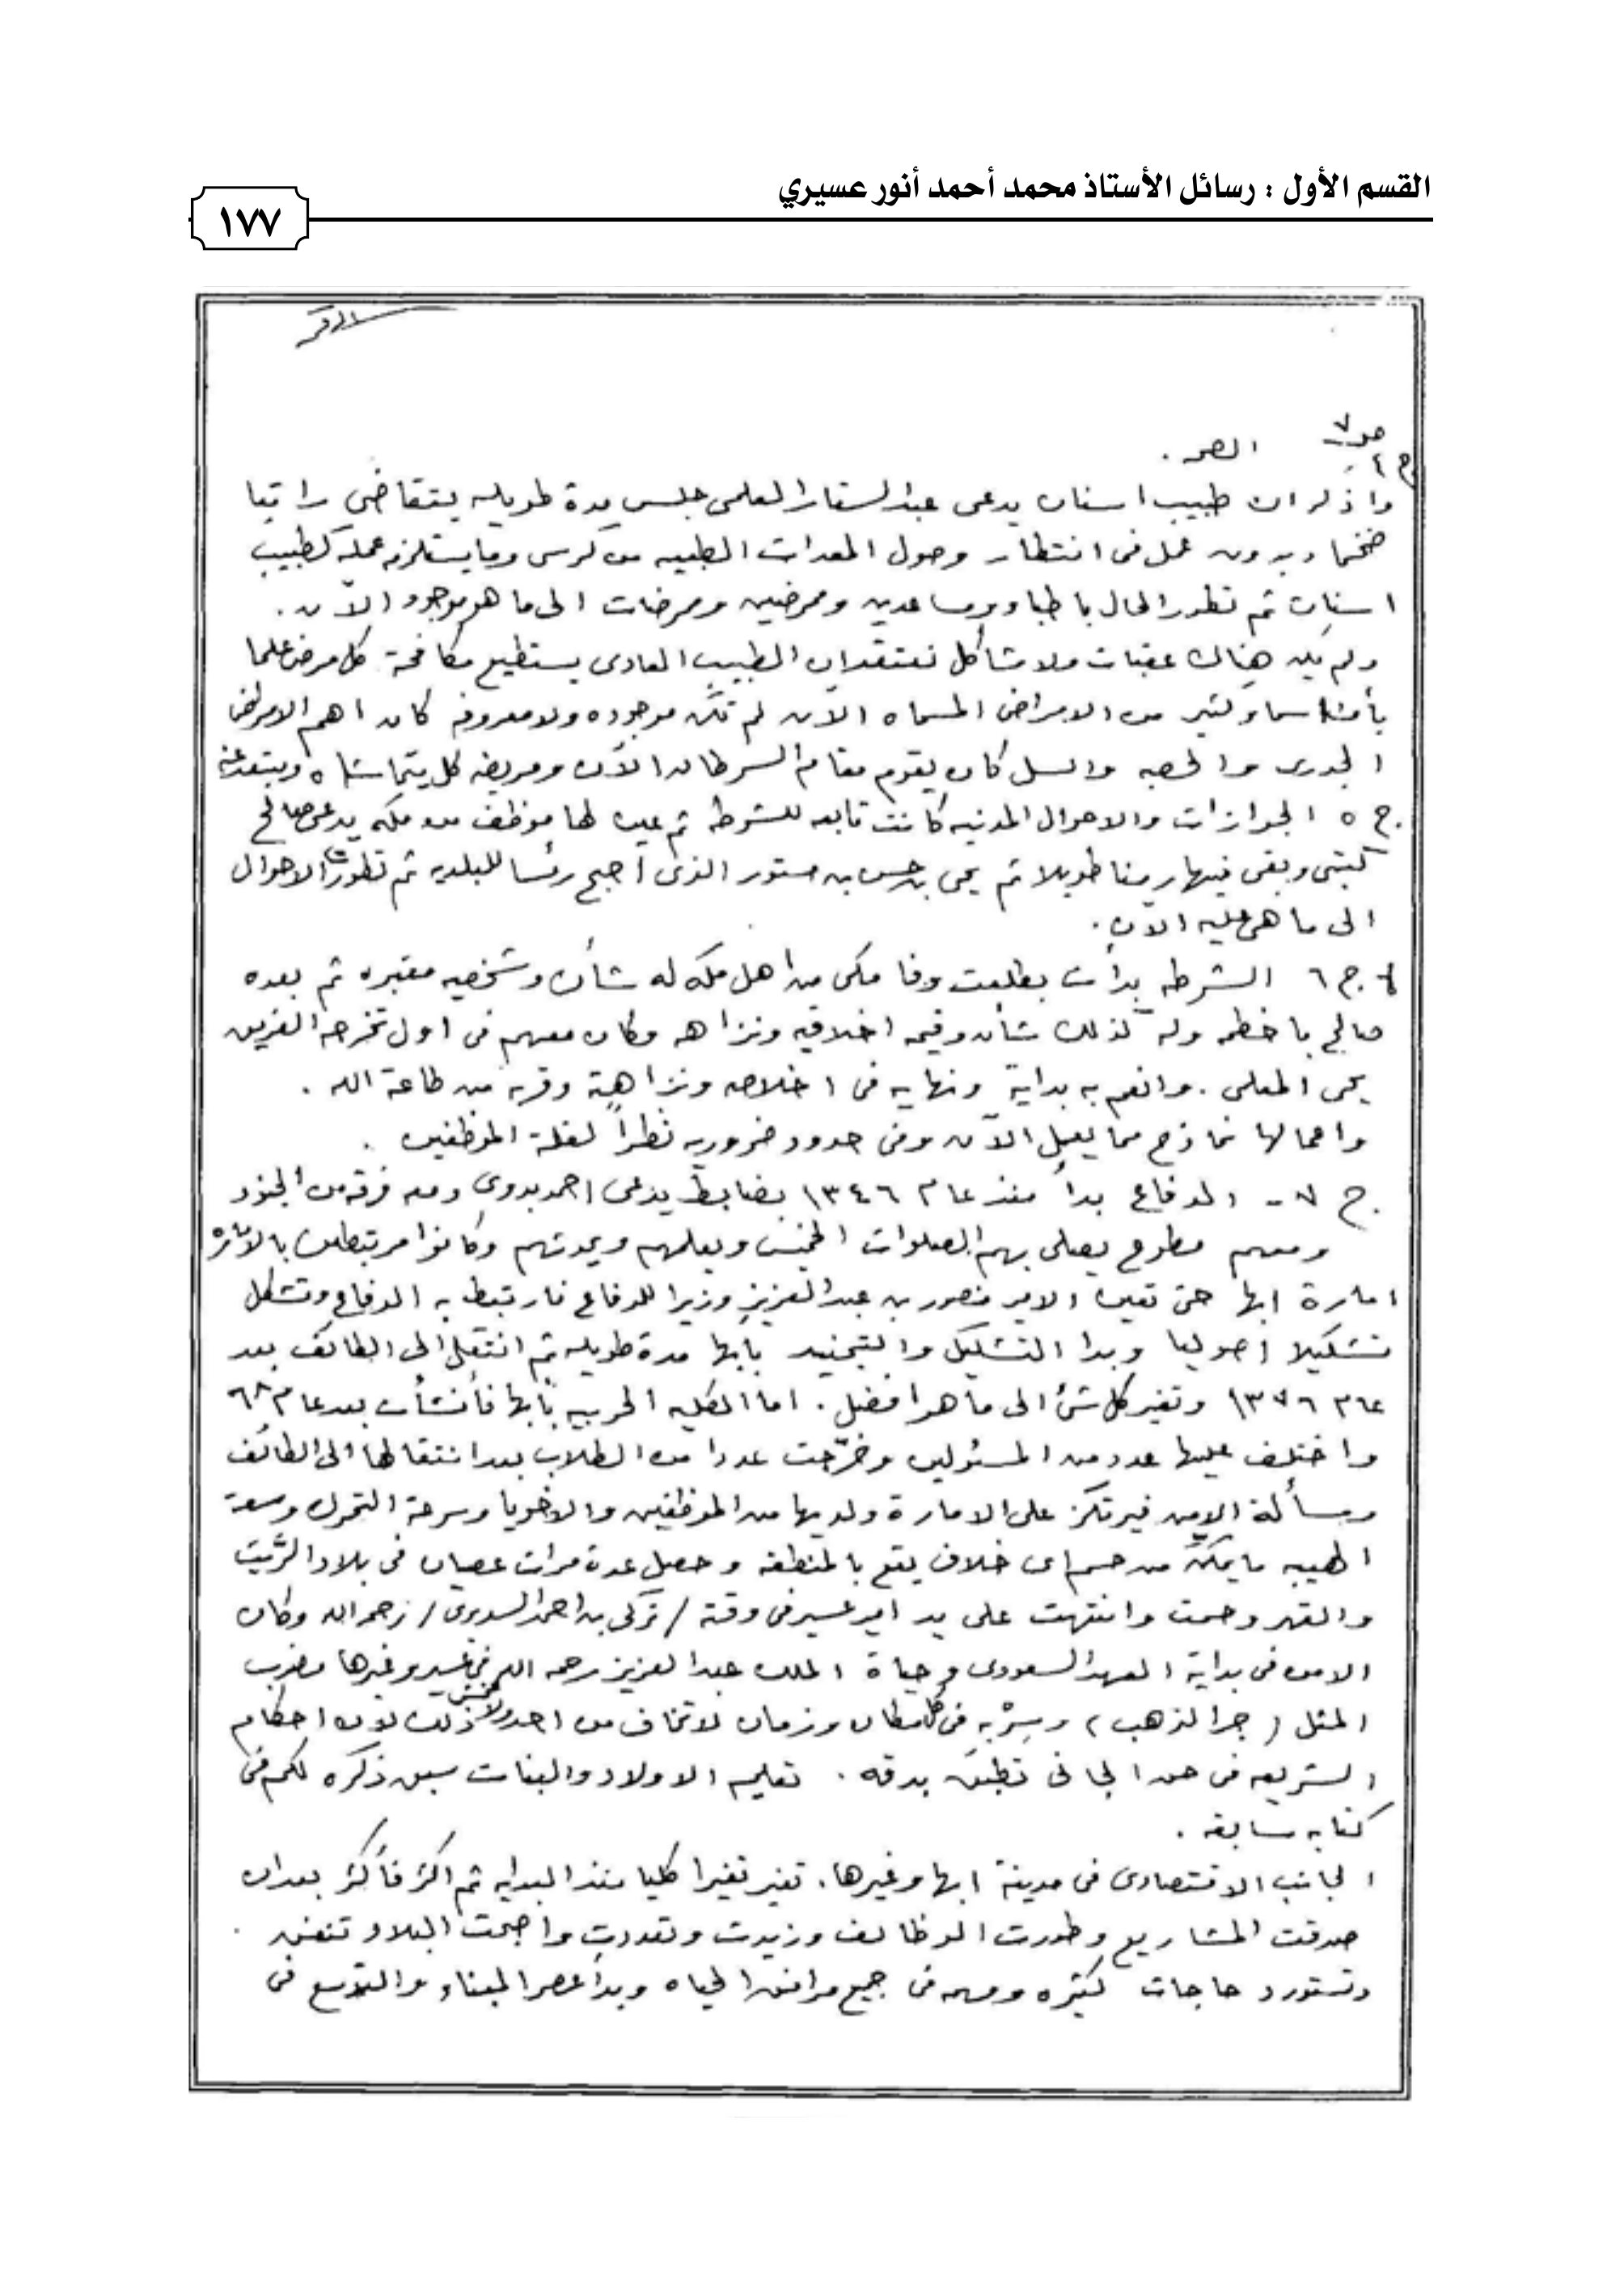 القسم الأول : رسائل الأستاذ محمد أحمد أنور عسيري
١٧٧
ص ٧
ج ٤ الصحه .
واذكر ان طبيب اسنان يدعى عبدالستار المعلمى جلس مدة طويله يتقاضى راتبا
ضخما وبدون عمل فى انتظار وصول المعدات الطبيه من كرسى وما يستلزمه عمله كطبيب
اسنان ثم تطور الحال باطباء ومساعدين وممرضين وممرضات الى ما هو موجود الآن .
ولم يكن هناك عقبات ولا مشاكل نعتقد ان الطبيب العادى يستطيع مكافحة كل مرض علما
بأن وكثير من الامراض المسماه الآن لم تكن موجوده ولا معروفه كان اهم الامراض
الجدرى والحصبه والسل كان يقوم مقام السرطان الآن ومريضه كل يتحاشاه ويبتعد عنه
ج ٥ الجوازات والاحوال المدنيه كانت تابعه للشرطه ثم عين لها موظف من مكه يدعى صالح
كتبى وبقى فيها زمنا طويلا ثم يحى بن حسن بن مستور الذى اصبح رئسا للبلديه ثم تطورت الاحوال
الى ما هى عليه الآن .
ج ٦ الشرطه بدأت بطلعت وفا مكى من اهل مكه له شأن وشخصيه معتبره ثم بعده
صالح باخطمه وله كذلك شأن وقيمه اخلاقيه ونزاهه وكان معهم فى اول تخرجه الفريق
يحى المعلمى . وانعم به بداية ونهايه فى اخلاصه ونزاهته وقربه من طاعة الله .
واعمالها نماذج مما يعمل الآن وفى حدود ضروريه نظراً لقلة الموظفين .
ج ٧ - الدفاع بدأ منذ عام ١٣٤٦ بضابط يدعى احمد بدوى ومعه فرقه من الجنود
ومعهم مطوع يصلى بهم الصلوات الخمس ويعلمهم وكانوا مرتبطين بالاماره
امارة ابها حتى تعين الامير منصور بن عبدالعزيز وزيرا للدفاع فارتبط به الدفاع وتشكل
تشكيلا اصوليا وبدا التشكيل والتجنيد بأبها مدة طويله ثم انتقل الى الطائف بعد
عام ١٣٧٦ وتغير كل شئ الى ما هو افضل . اما الكليه الحربيه بأبها فأنشأت بعد عام ٦٨
واختلف عليها عدد من المسئولين وخرّجت عددا من الطلاب بعد انتقالها الى الطائف
ومسألة الامن فيرتكز على الامارة ولديها من الموظفين والاخويا وسرعة التحرك وسعة
الهيبه ما يمكّن من حسم اى خلاف يقع بالمنطقه وحصل عدة مرات عصيان فى بلاد الرّيث
والقهر وحسمت وانتهت على يد امير عسير فى وقته / تركى بن احمد السديرى / رحمه الله وكان
الامن فى بداية العهد السعودى وحياة الملك عبدالعزيز رحمه الله فى عسير وغيرها مضرب
المثل ( جر الذهب ) وسِرْ به فى كل مكان وزمان لا تخاف من احد ولا تخشى ذلك لان احكام
الشريعه فى حق الجانى تطبق بدقه . تعليم الاولاد والبنات سبق ذكره لكم فى
كتابه سابقه .
الجانب الاقتصادى فى مدينة ابها وغيرها . تغير تغيرا كليا منذ البدايه ثم اكثر فأكثر بعد ان
صدقت المشاريع وطورت الوظائف وزيدت وتعددت واصبحت البلاد
وتستورد حاجات كثيره ومهمه فى جميع مرافق الحياه وبدأ عصر البناء والتوسع فى